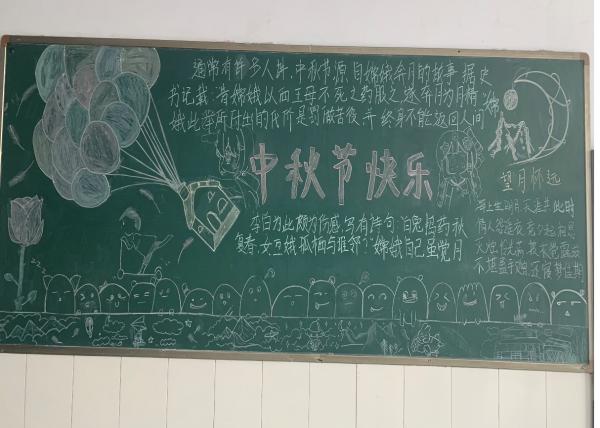 通常有许多人讲,中秋节源自嫦娥奔月的故事,据史
书记载"昔嫦娥以西王母不死之药服之,遂奔月为月精"嫦
娥此举所付出的代价是罚做苦役,并终身不能返回人间
中秋节快乐
李白为此颇为伤感,写有诗句"白兔捣药秋
复春,女亘娥孤栖与谁邻?"嫦娥自己虽觉月
望月怀远
海上生明月 天涯共此时
情人怨遥夜 竟夕起相思
灭烛怜光满 披衣觉露滋
不堪盈手赠 还寝梦佳期